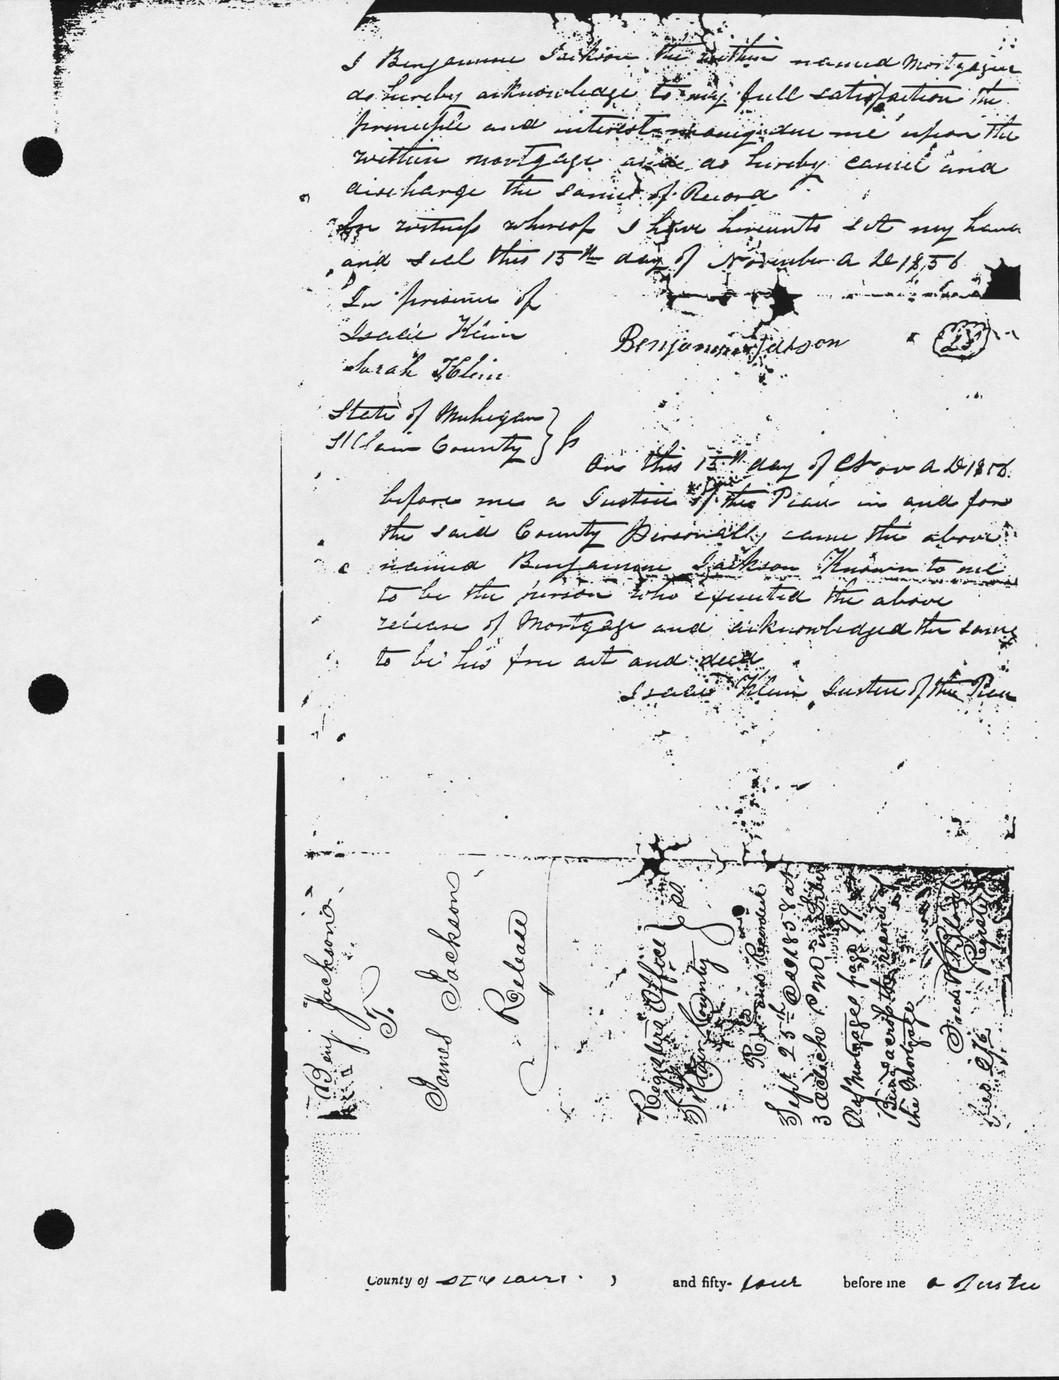 I Benjamine Jackson the within named Mortgagee
do hereby acknowledge to my full satisfaction the
principle and interest money due me upon the
within mortgage and do hereby cancel and
discharge the same of Record
In witness whereof I have hereunto set my hand
and seal this 15th day of November A D 1856
In presence of
Isaac Klein
Sarah Klein
Benjamine Jackson
LS
State of Michigan
St Clair County } ss
On this 15th day of Nov A D 1856
before me a Justice of the Peace in and for
the said County Personally came the above
named Benjamine Jackson Known to me
to be the person who executed the above
release of Mortgage and acknowledged the same
to be his free act and deed
Isaac Klein Justice of the Peace
Benj Jackson
To
James Jackson
Release
Registers Office }
St Clair County } ss
Recd and Recorded
Sept 25th AD 1858 at
3 Oclock P M in Liber
of Mortgages page 99
Being across the record of
the Mortgage
Register
County of St Clair and fifty-four before me a Justice